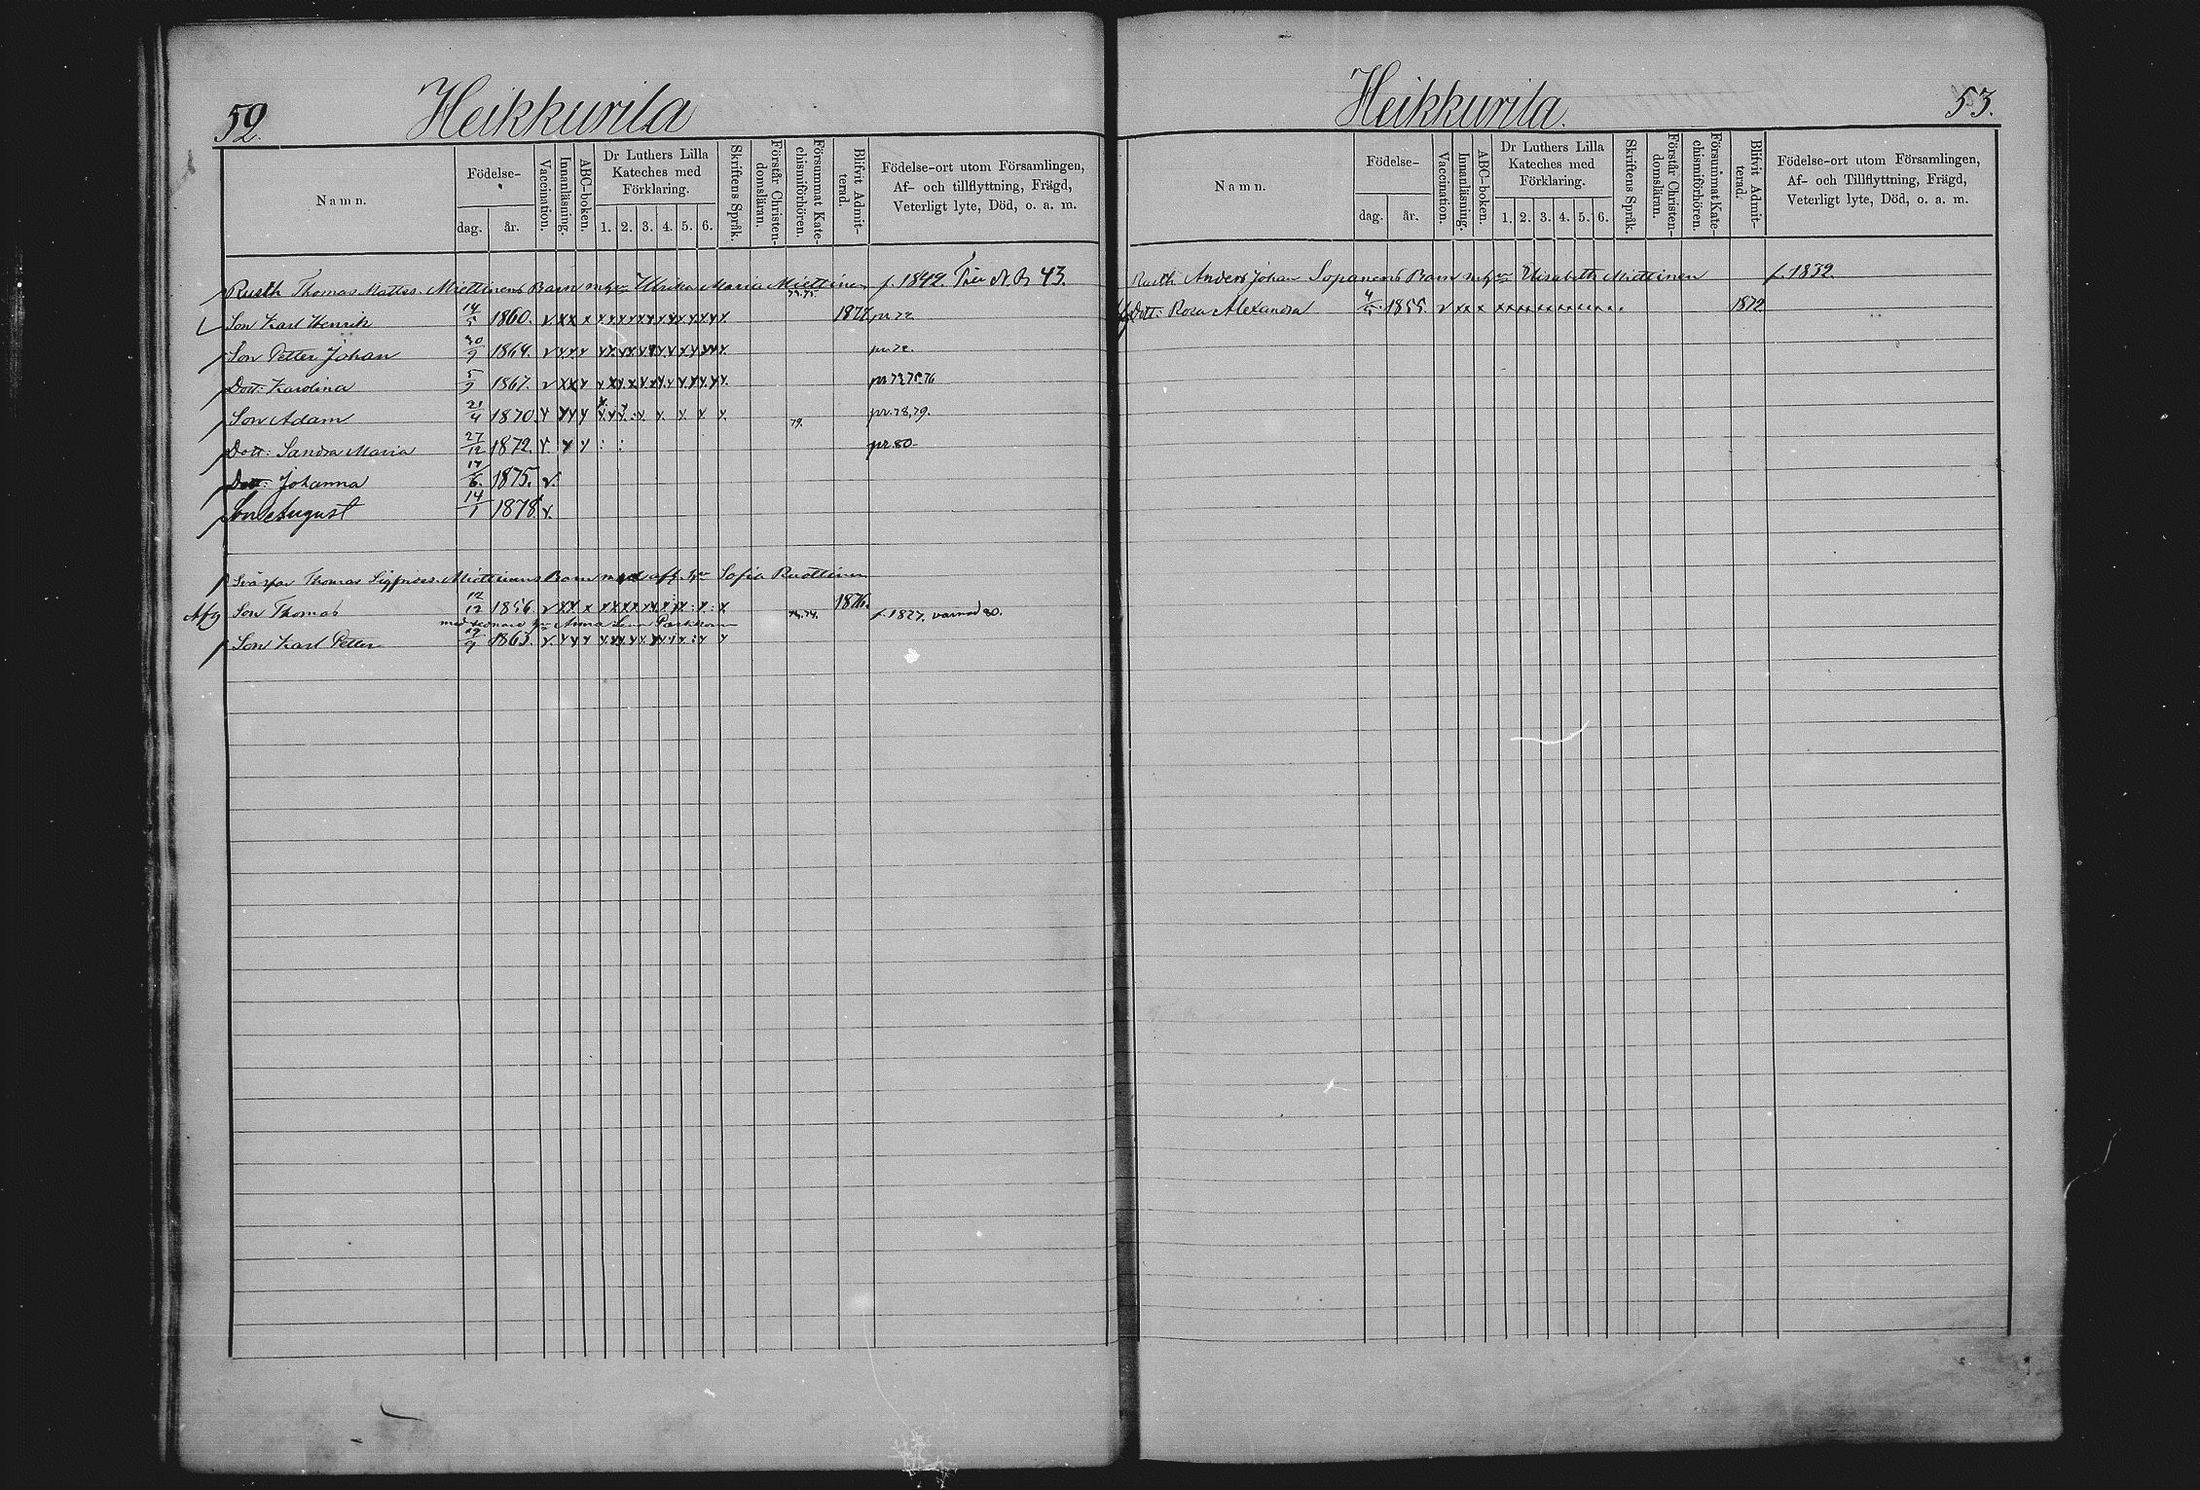 52.
Heikkurila
Namn.
Födelse-
dag.
år.
Vaccination.
Innanläsning.
ABC-boken.
Dr Luthers Lilla
Kateches med
Förklaring.
1. 2. 3. 4. 5. 6.
Skriftens Språk.
Förstår Christen-
domsläran.
Försummat Kate-
chismiförhören.
Blifvit Admit-
terad.
Födelse-ort utom Församlingen,
Af- och tillflyttning, Frägd,
Veterligt lyte, Död, o. a. m.
Rusth Thomas Mattss. Miettinens Barn m. h. Ulrika Maria Miettinen
Son Karl Henrik 14/5 1860. v x x x 1877 pr 72
Son Petter Johan 1864. pr. 72.
Dott: Karolina 5/9 1867.
Son Adam 21/4 1870 79. pr. 78,79.
Dott: Sandra Maria 27/12 1872. pr. 80.
Dott: Johanna 17/6. 1875. v.
Son August 14/1 1878 v.
Thomas Miettinens Barn Sofia Ruottinen
Son Thomas 12/12 1856. 1876. f. 1827. 80.
Anna Lena
Son Karl Petter 1863.
Heikkurila.
53.
Namn.
Födelse-
dag.
år.
Vaccination.
Innanläsning.
ABC-boken.
Dr Luthers Lilla
Kateches med
Förklaring.
1. 2. 3. 4. 5. 6.
Skriftens Språk.
Förstår Christen-
domsläran.
Försummat Kate-
chismiförhören.
Blifvit Admit-
terad.
Födelse-ort utom Församlingen,
Af- och Tillflyttning, Frägd,
Veterligt lyte, Död, o. a. m.
Rusth. Anders Johan Sopanens Barn Elisabeth Miettinen f. 1832.
Dott: Rosa Alexandra 1855 v x x x 1872